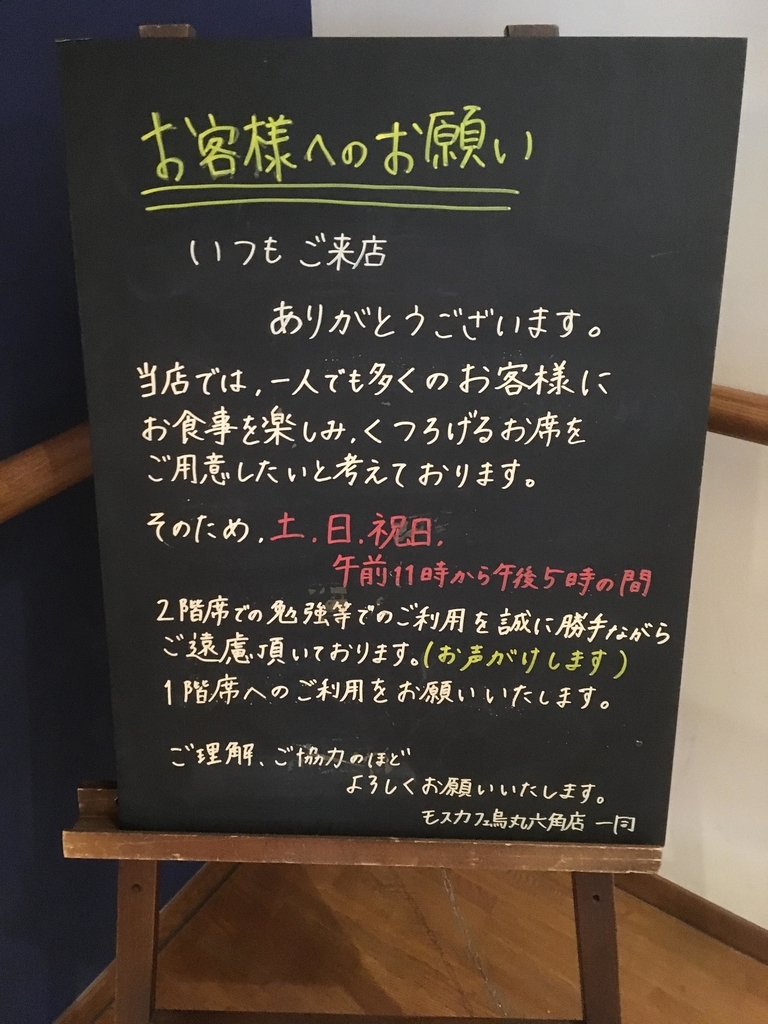 お客様へのお願い
いつもご来店
ありがとうございます。
当店では、一人でも多くのお客様に
お食事を楽しみ、くつろげるお席を
ご用意したいと考えております。
そのため、土、日、祝日、
午前11時から午後5時の間
2階席での勉強等でのご利用を誠に勝手ながら
ご遠慮頂いております。(お声がけします)
1階席へのご利用をお願いいたします。
ご理解、ご協力のほど
よろしくお願いいたします。
モスカフェ烏丸六角店 一同